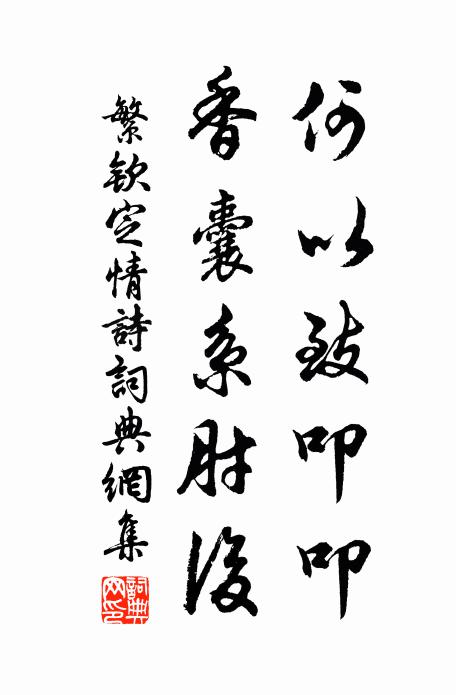 何以致叩叩
香囊系肘後
繁欽定情詩詞典網集
詞典網印